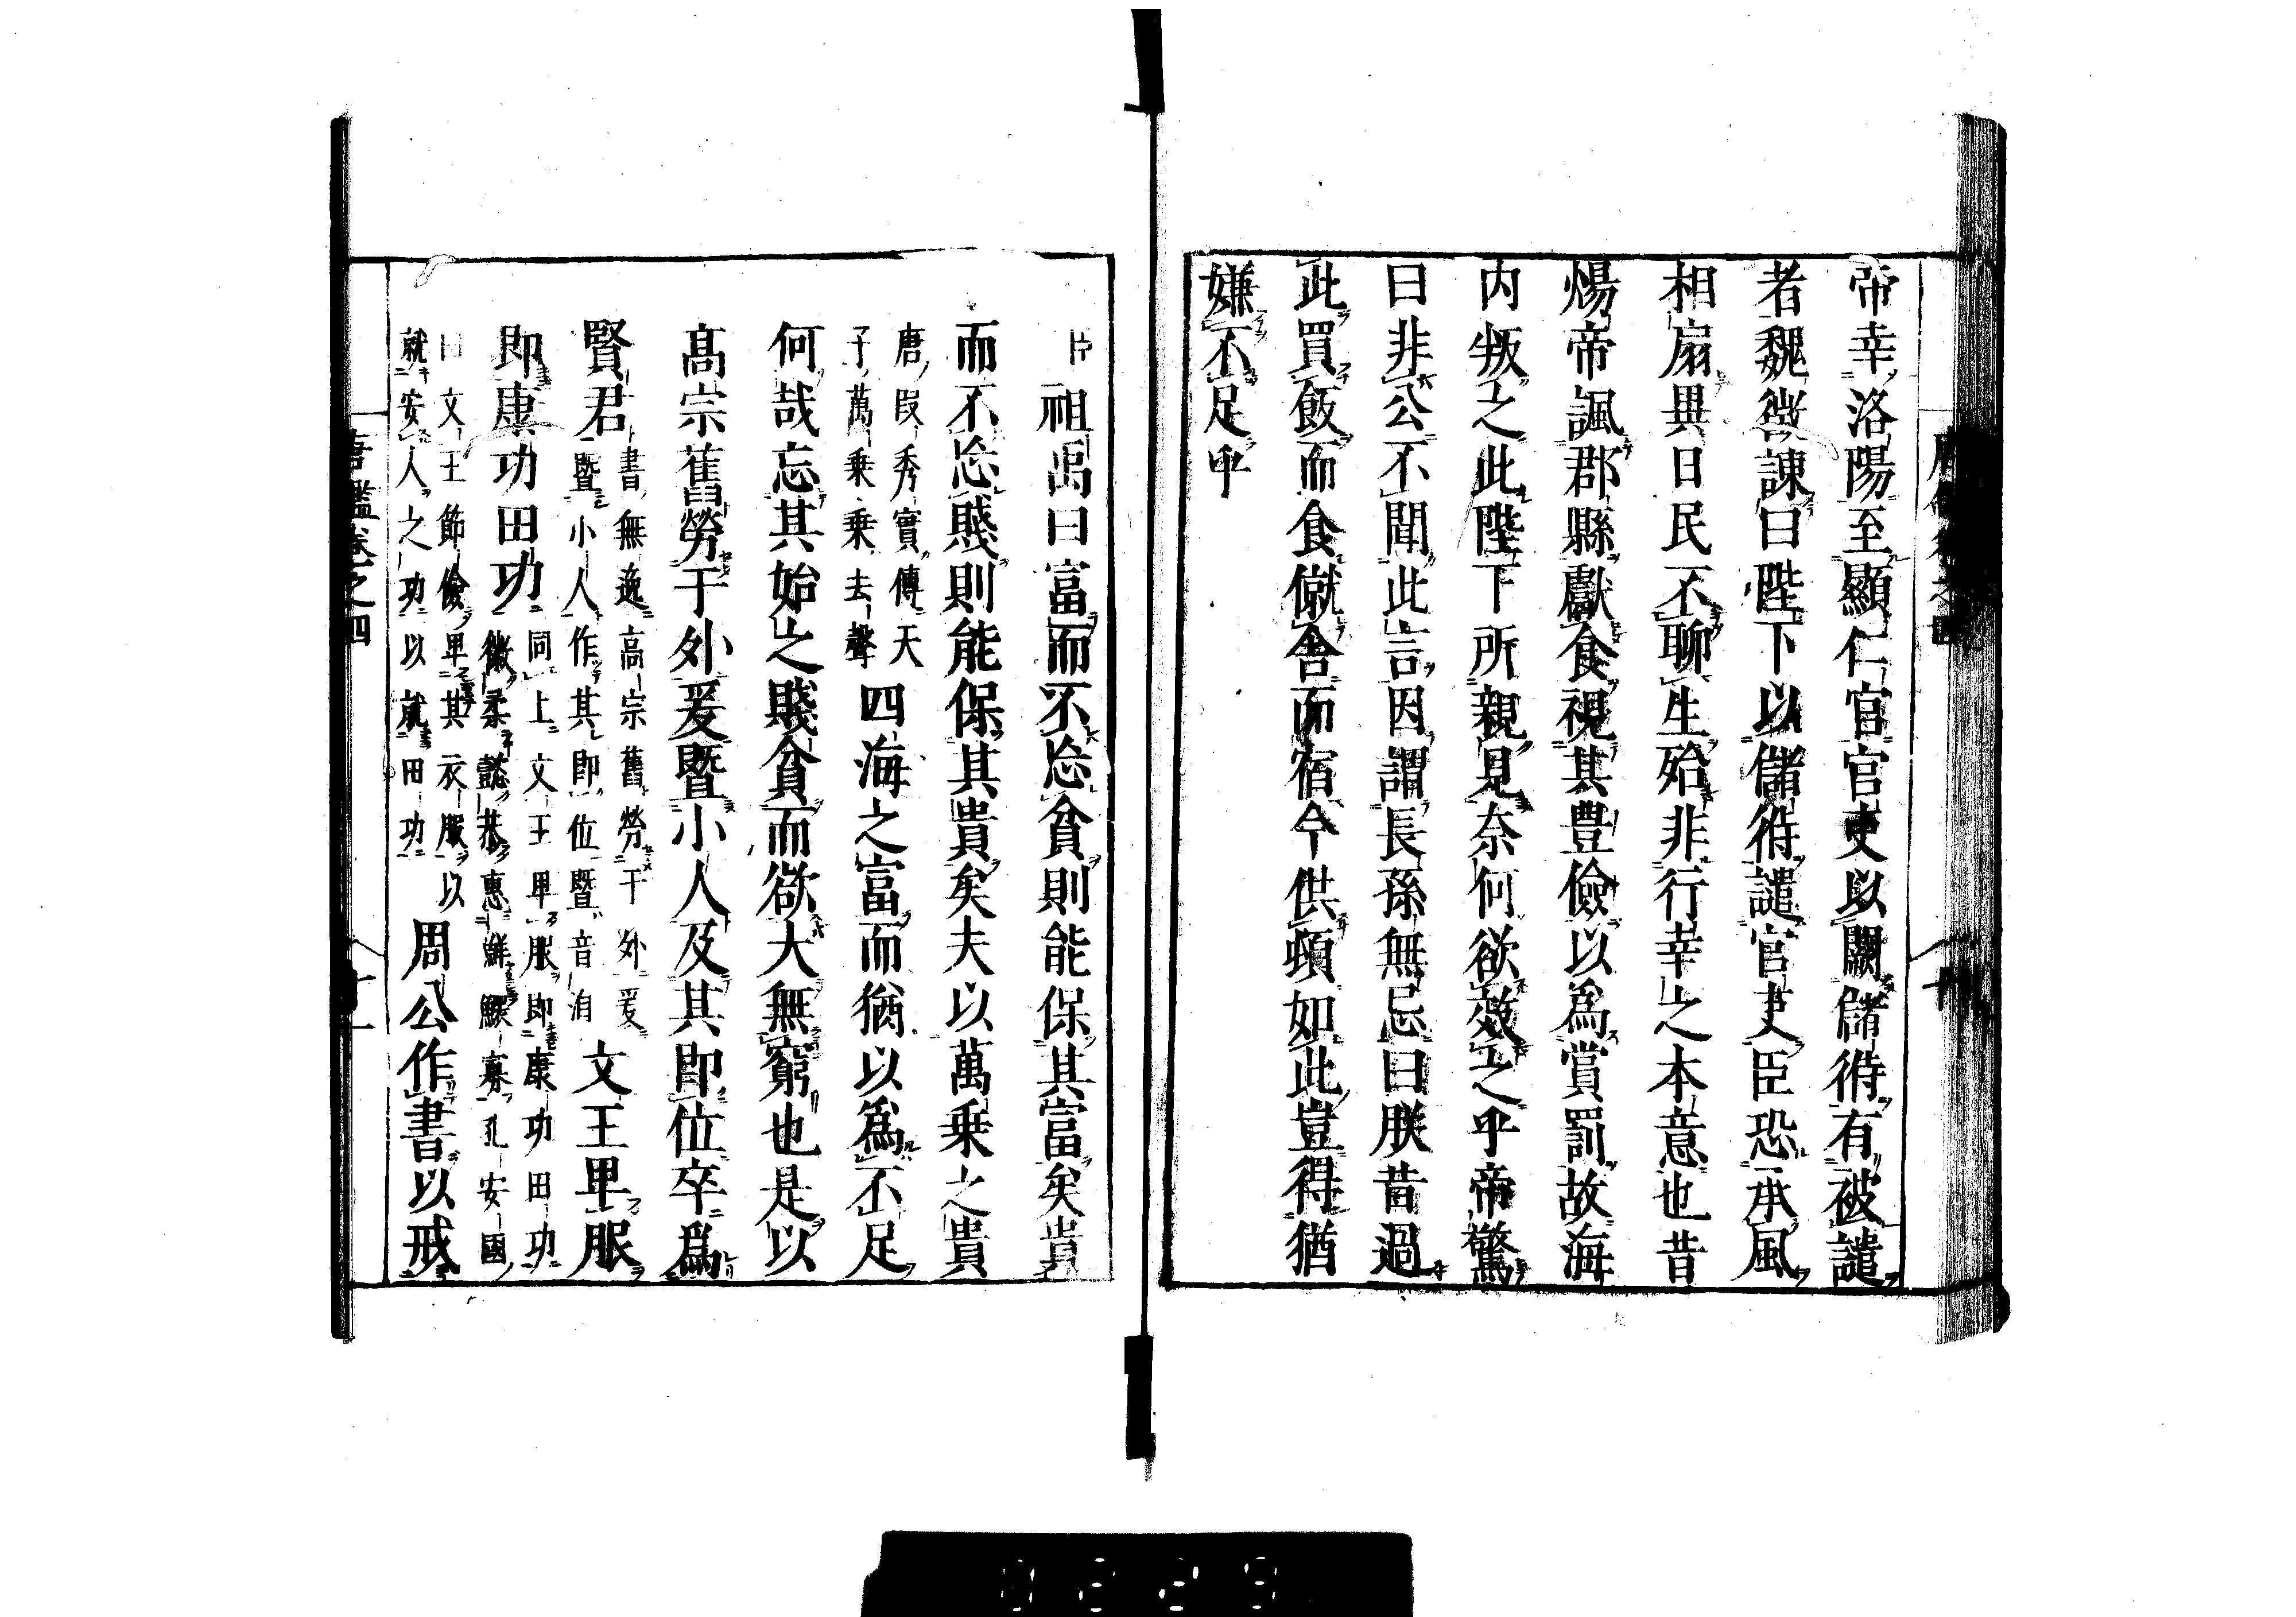 帝幸洛陽至顯仁宮官吏以闕儲偫有被譴
者魏徵諫曰陛下以儲偫譴官吏臣恐承風
相扇異日民不聊生殆非行幸之本意也昔
煬帝諷郡縣獻食視其豊儉以爲賞罰故海
内叛之此陛下所親見奈何欲效之乎帝驚
曰非公不聞此言因謂長孫無忌曰朕昔過
此買飯而食僦舍而宿今供頓如此豈得猶
嫌不足乎
臣祖禹曰富而不忘貧則能保其富矣貴
而不忘賤則能保其貴矣夫以萬乗之貴
唐段秀實傳天
子萬乗乗去聲
四海之富而猶以爲不足
何哉忘其始之賤貧而欲大無窮也是以
髙宗舊勞于外爰曁小人及其即位卒爲
賢君
書無逸高宗舊勞于外爰
曁小人作其即位曁音洎
文王卑服
即康功田功
同上文王卑服即康功田功
徽柔懿恭惠鮮鰥寡孔安國
曰文王節儉卑其衣服以
就安人之功以就田功
周公作書以戒
唐鑑卷之四
十一